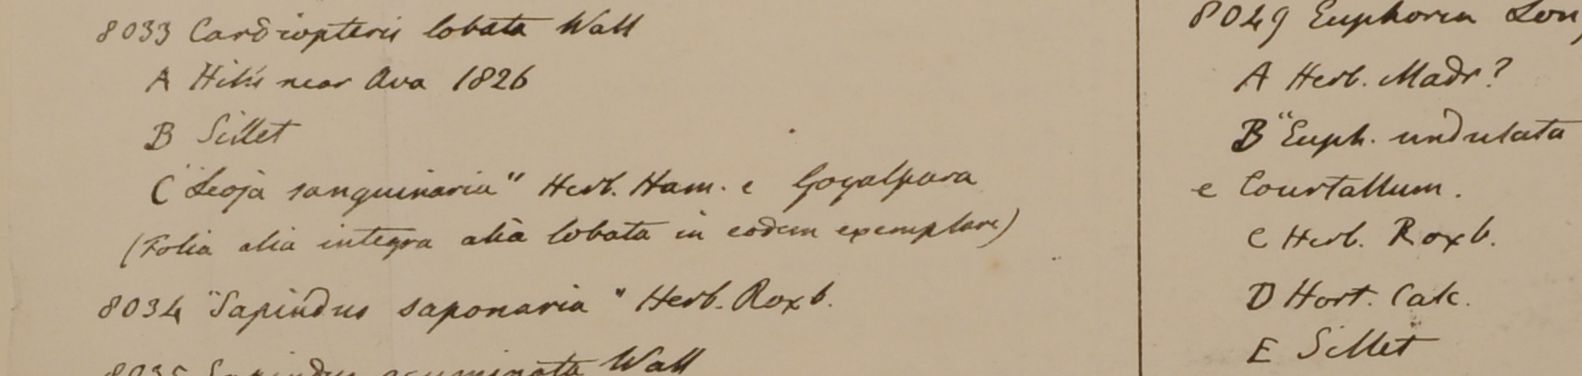 8033 Cardiopteris lobata Wall
A Hills near Ava 1826
B Sillet
C "Leoja sanguinaria" Herb. Ham. e Goyalpara
(Folia alia integra alia lobata in eodem exemplare)
8034 "Sapindus saponaria" Herb. Roxb.
8035 Sapindus acuminata Wall
8049 Euphoria
A Herb. Madr?
B "Euph. undulata
e Courtallum.
C Herb. Roxb.
D Hort. Calc.
E Sillet